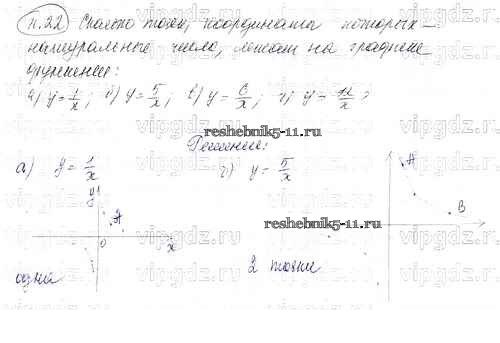 н.22 Сколько точек, координаты которых –
натуральные числа, лежат на графике
функции:
а) y = 1/x; б) y = 5/x; в) y = 6/x; г) y = 12/x ?
reshebnik5-11.ru
Решение:
а) y = 1/x
y = 5/x
y A
0 x
A
B
reshebnik5-11.ru
одна
2 точки
vipgdz.ru